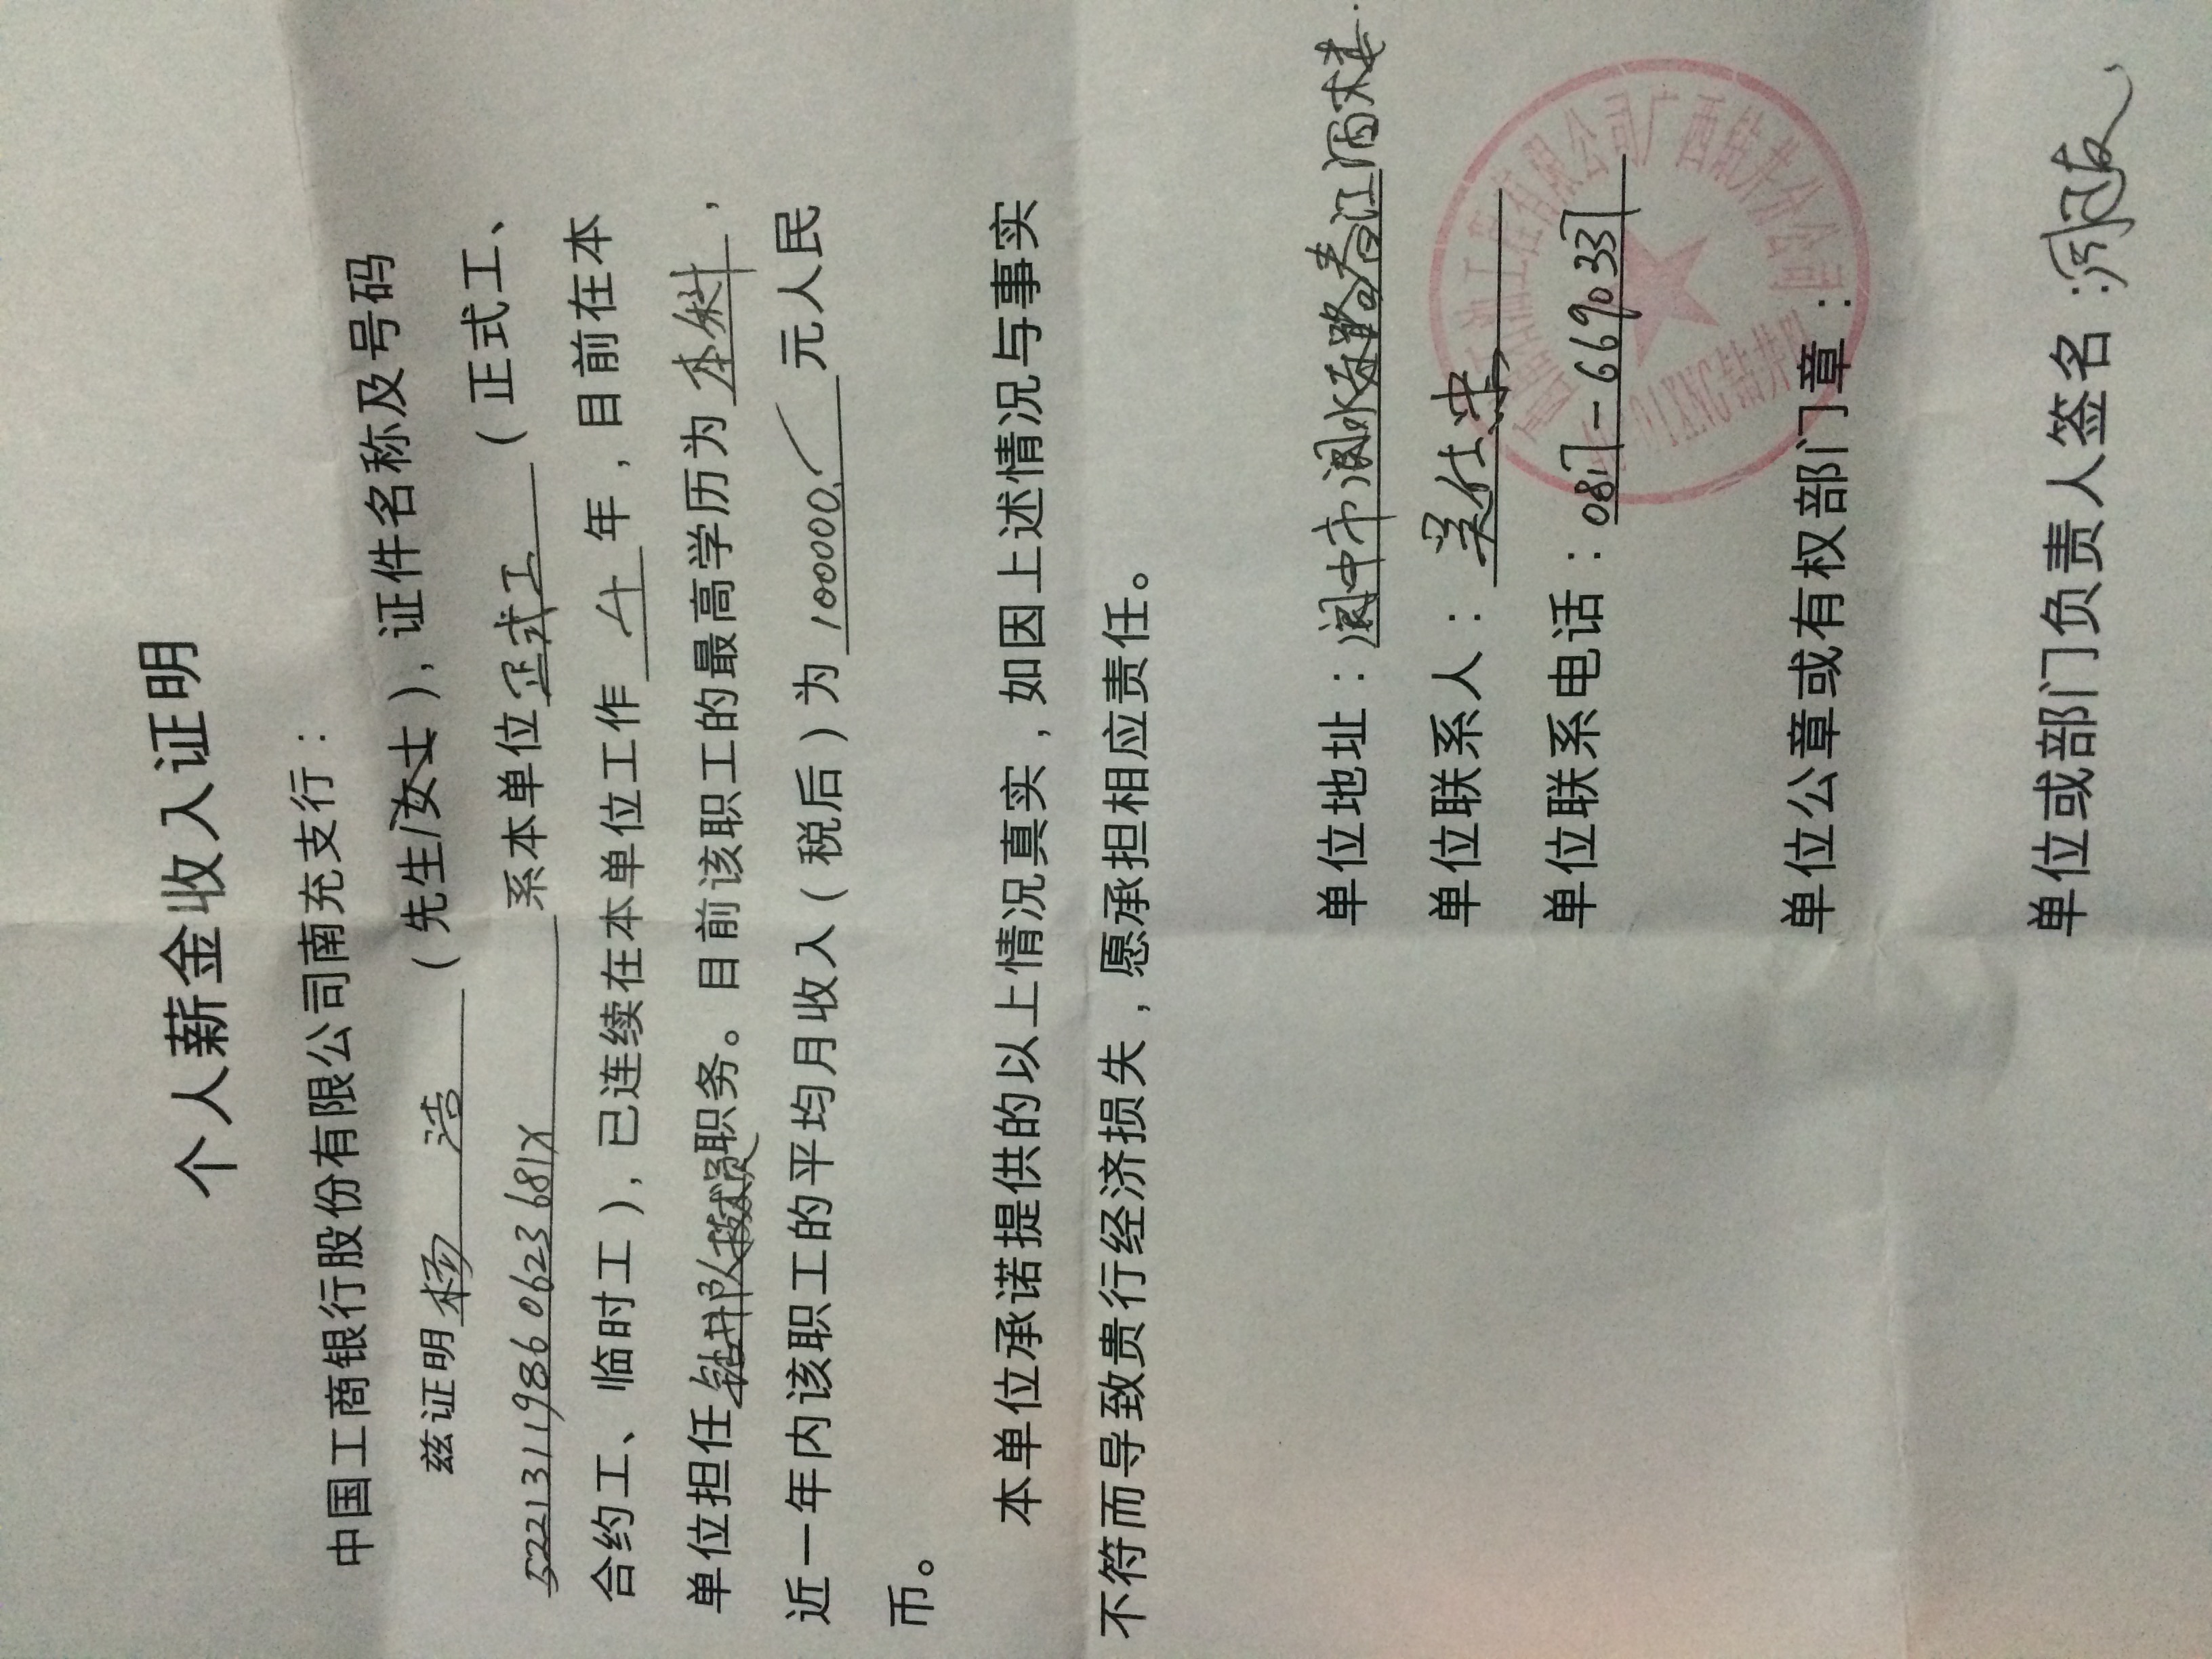 个人薪金收入证明
中国工商银行股份有限公司南充支行：
兹证明杨 浩（先生/女士），证件名称及号码
52213119860623681X 系本单位正式工（正式工、
合约工、临时工），已连续在本单位工作 年，目前在本
单位担任钻井队技术员职务。目前该职工的最高学历为本科，
近一年内该职工的平均月收入（税后）为10000.元人民
币。
本单位承诺提供的以上情况真实，如因上述情况与事实
不符而导致贵行经济损失，愿承担相应责任。
单位地址：阆中市阆水东路 江
单位联系人：吴仕
单位联系电话：0817-6690337
单位公章或有权部门章：
单位或部门负责人签名：